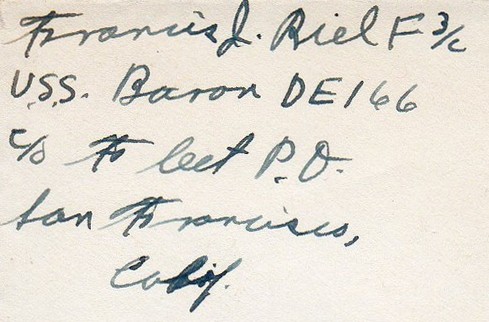 Francis J. Riel F 3/c
U.S.S. Baron DE166
c/o Fleet P.O.
San Francisco,
Calif.